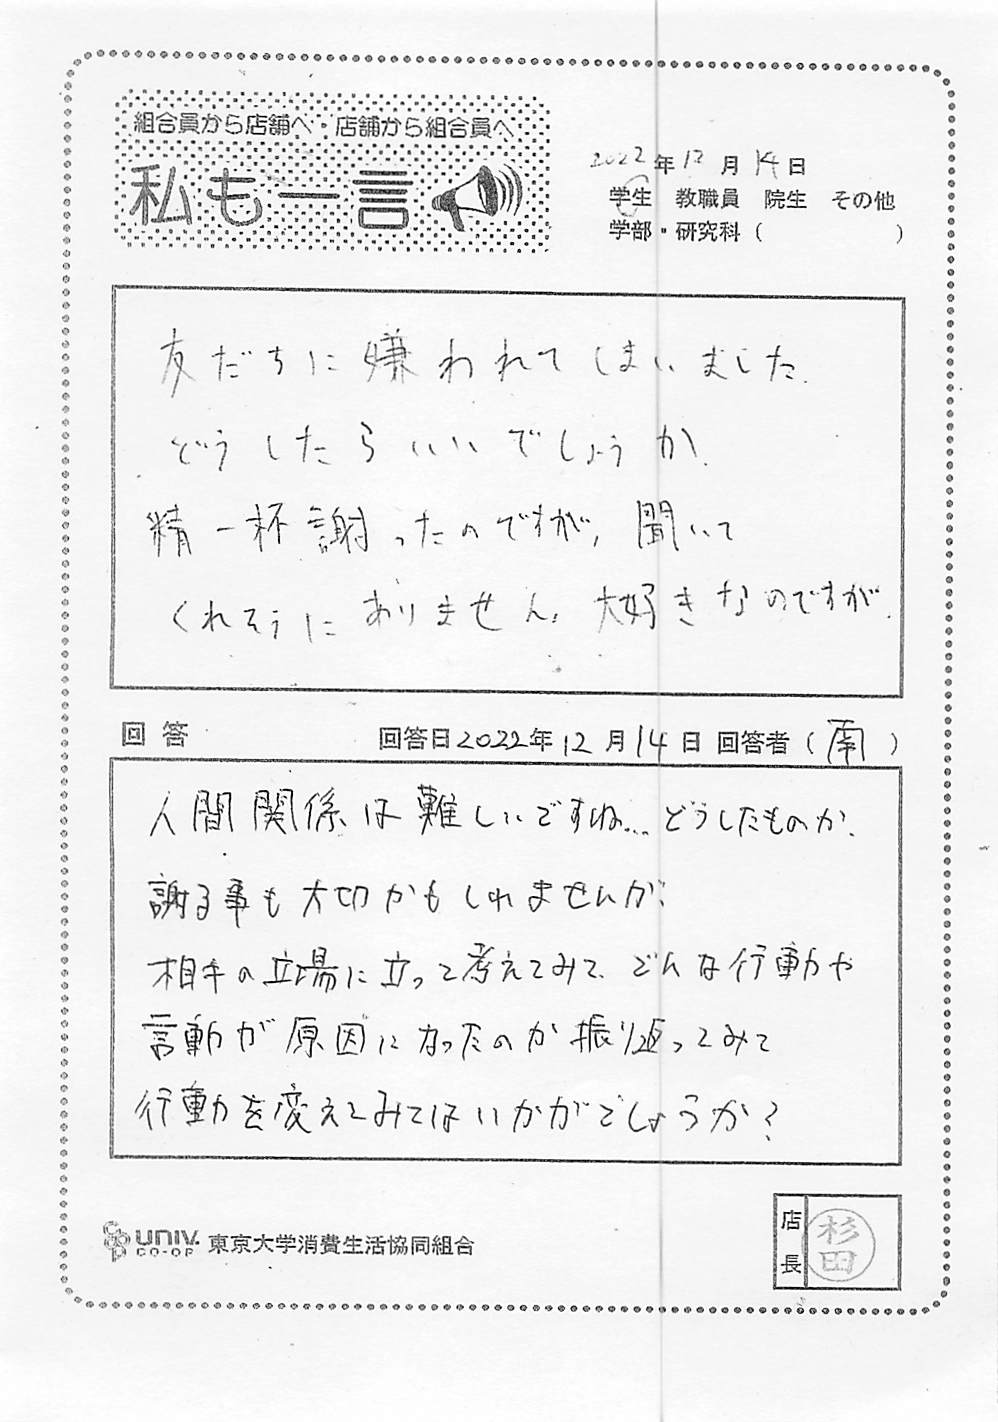 組合員から店舗へ・店舗から組合員へ
私も一言
2022年12月14日
学生 教職員 院生 その他
学部・研究科（ ）
友だちに嫌われてしまいました。
どうしたらいいでしょうか。
精一杯謝ったのですが、聞いて
くれそうにありません。大好きなのですが。
回答 回答日2022年12月14日 回答者（南）
人間関係は難しいですね… どうしたものか。
謝る事も大切かもしれませんが、
相手の立場に立って考えてみて、どんな行動や
言動が原因になったのか振り返ってみて
行動を変えてみてはいかがでしょうか？
coop univ. CO-OP 東京大学消費生活協同組合
店長 杉田